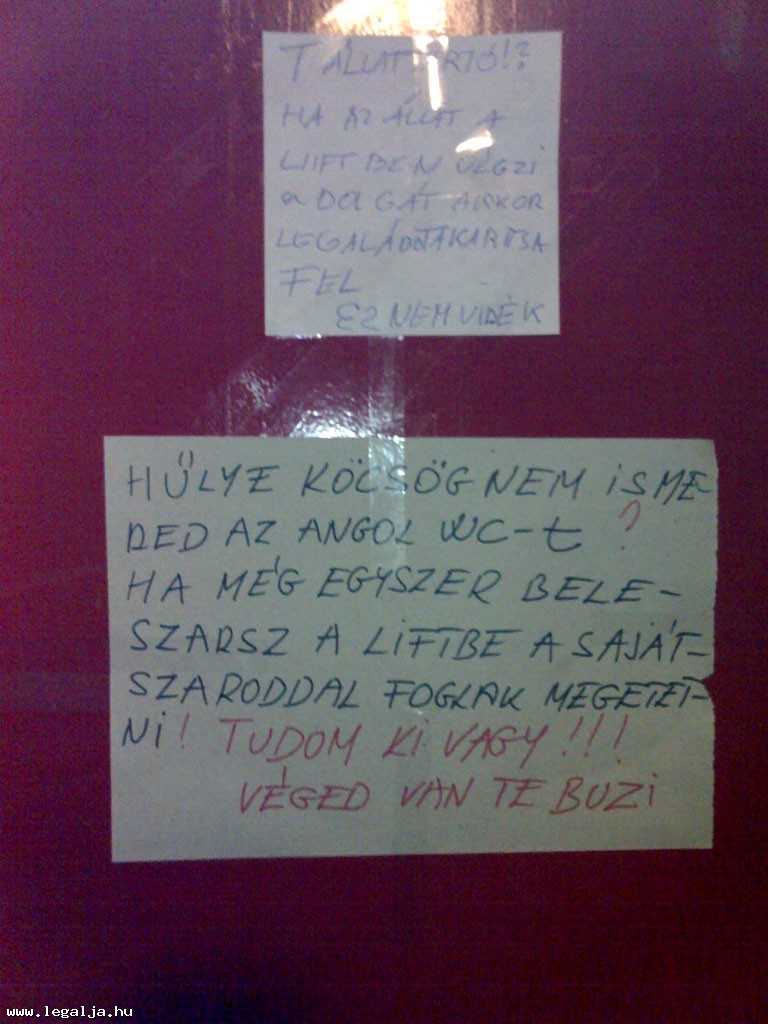 T ÁLLATTARTÓ!?
HA AZ ÁLLAT A
LIFTBEN VÉGZI
a DOLGÁT AKKOR
LEGALÁBB TAKARÍTSA
FEL
EZ NEM VIDÉK
HŰLYE KÖCSÖG NEM iSME-
RED AZ ANGOL WC-t ?
HA MÉG EGYSZER BELE-
SZARSZ A LIFTBE A SAJÁT-
SZARODDAL FOGLAK MEGETET-
Ni! TUDOM KI VAGY!!!
VÉGED VAN TE BUZi
www.legalja.hu